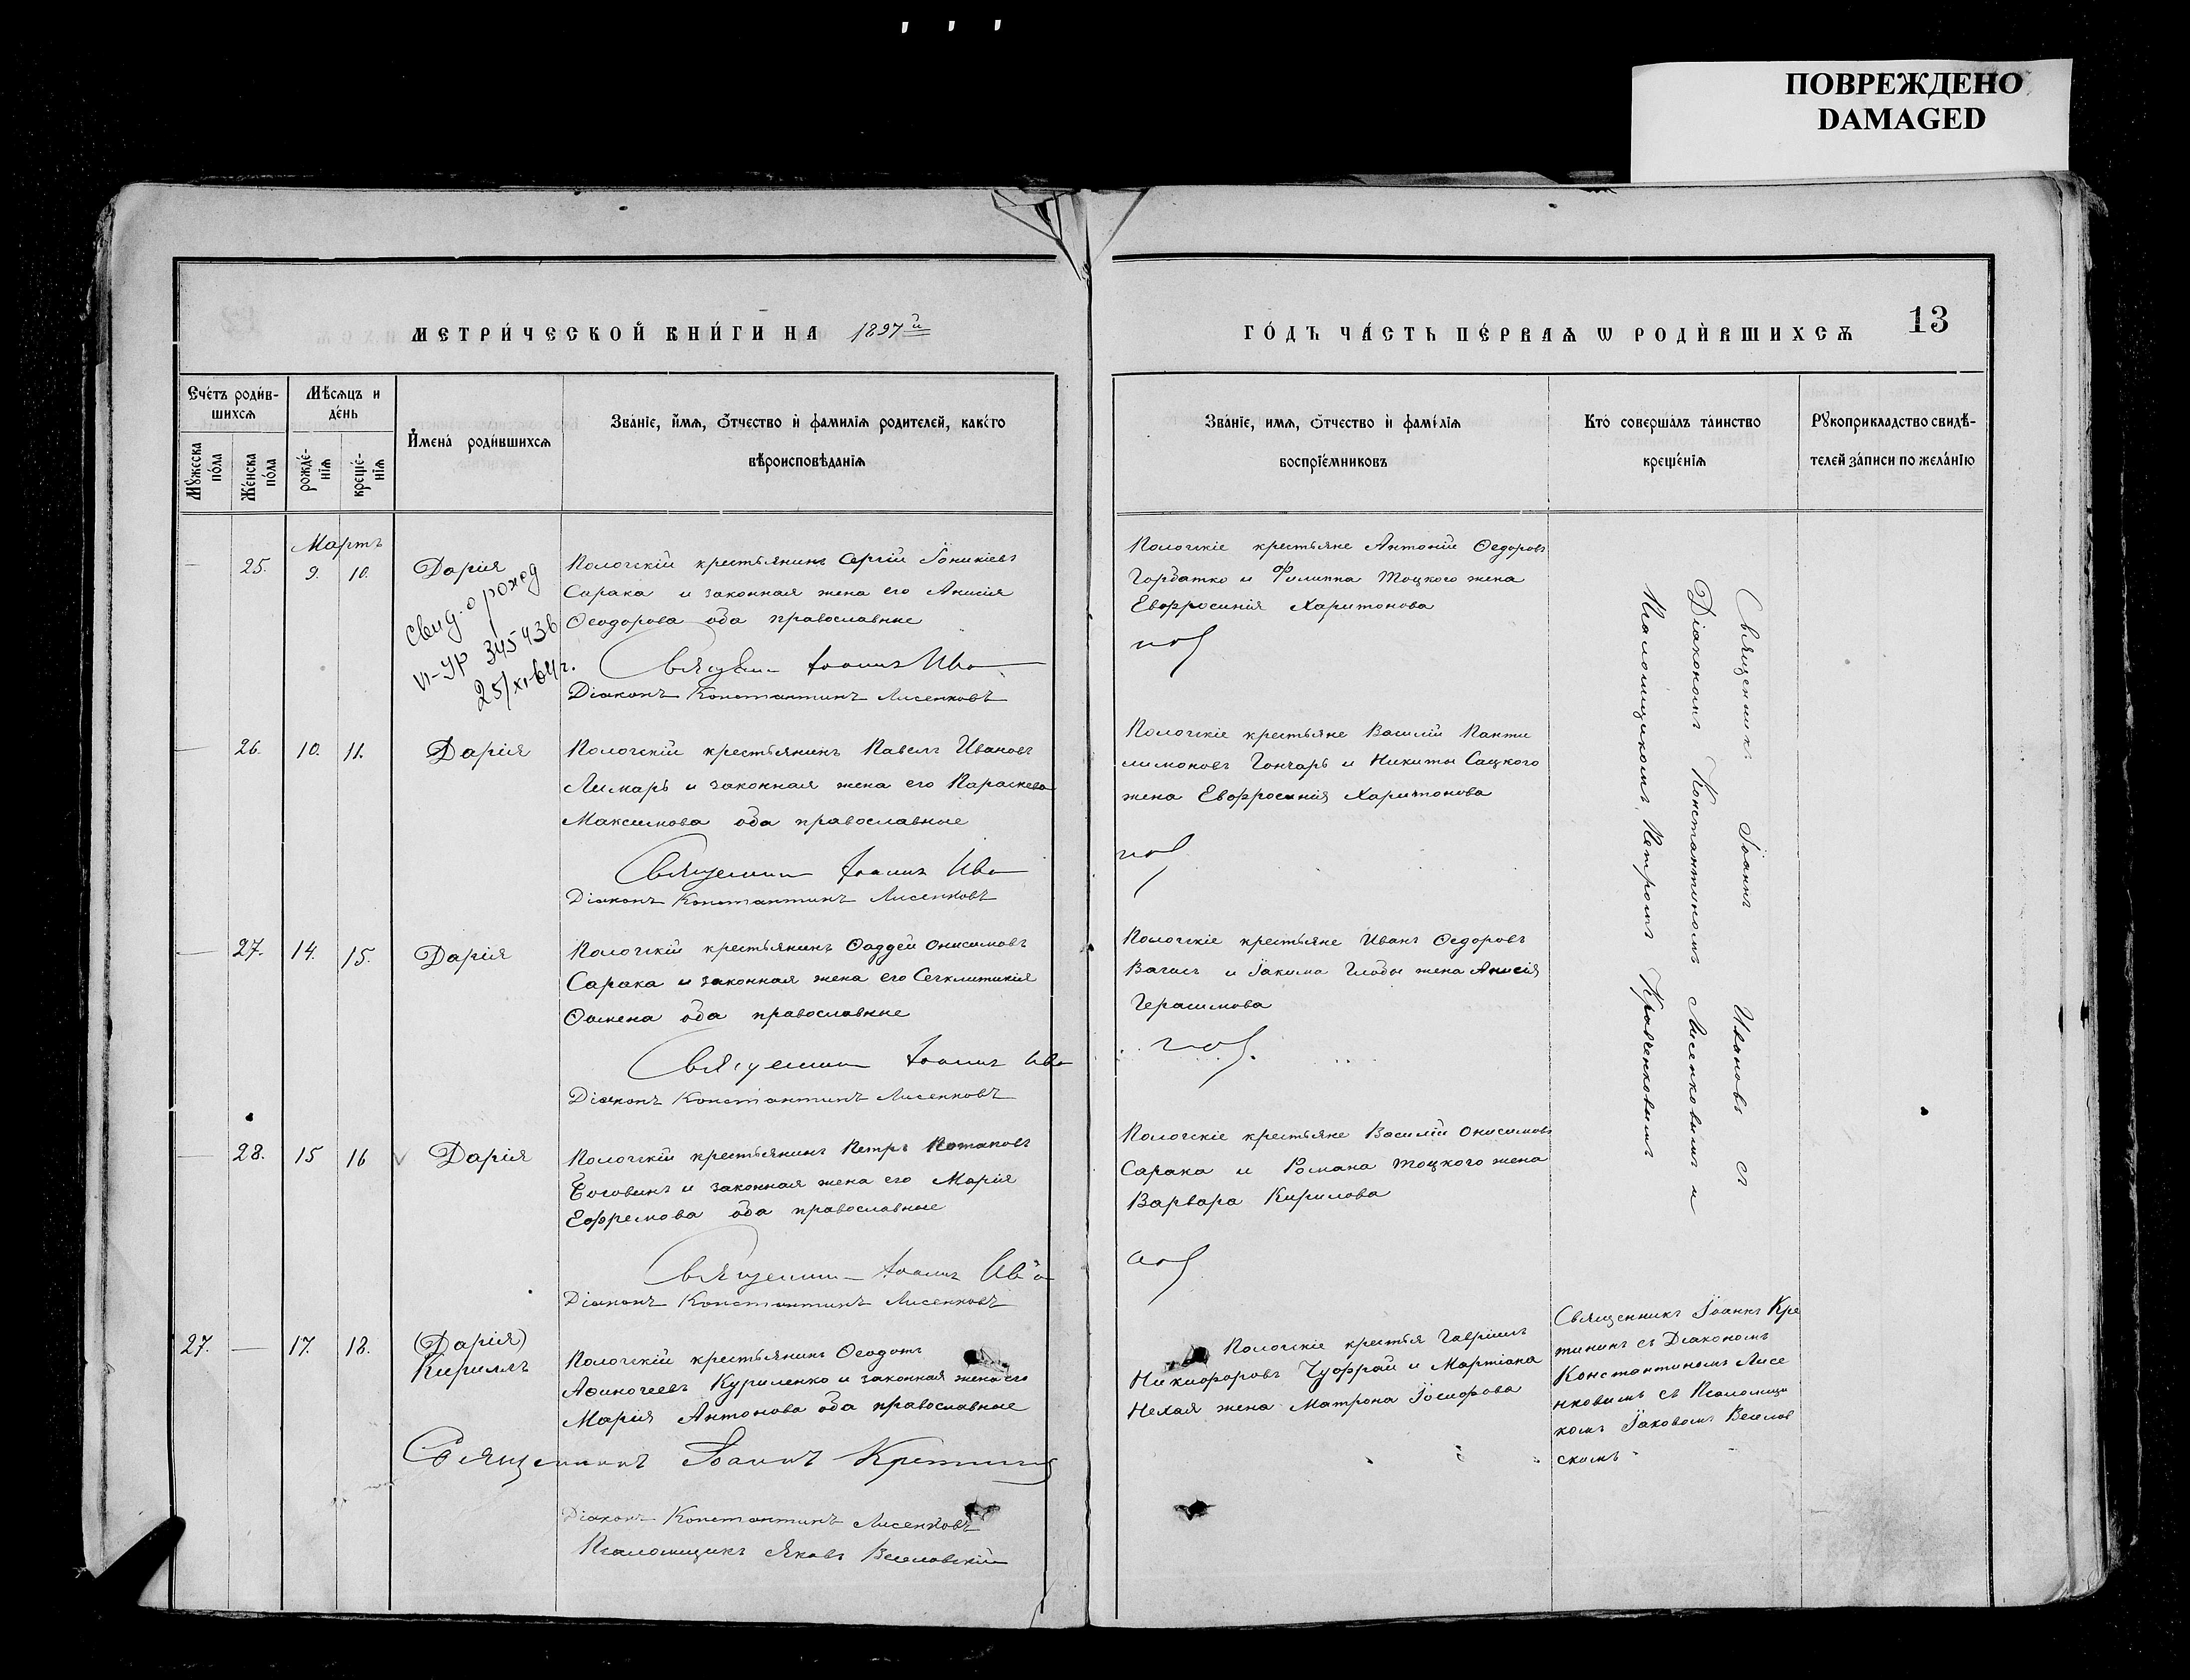 ПОВРЕЖДЕНО
DAMAGED
МЕТРИ́ЧЕСКОЙ КНИ́ГИ НА 1897й
ГО́ДЪ ЧА́СТЬ ПЕ́РВАѦ Ѡ РОДИ́ВШИХСѦ
13
Счетъ роди́в-
шихсѧ
Мѣсѧцъ и
де́нь
Мꙋ́жеска
по́ла
Же́нска
по́ла
рожде́-
нїѧ
креще́-
нїѧ
И҆мена̀ роди́вшихсѧ
Зва́нїе, и҆́мѧ, ѻ҆́тчество и҆ фами́лїѧ роди́телей, како́го
вѣроисповѣ́данїѧ
Зва́нїе, и҆мѧ, ѻ҆́тчество и҆ фами́лїѧ
воспрїе́мниковъ
Кто̀ соверша́лъ та́инство
креще́нїѧ
Рꙋкоприкла́дство свидѣ́-
телей за́писи по жела́нїю
Мартъ
— 25. 9. 10. Дарія
свид. о рожд
VI-УР 345436
25/XI-64г.
Пологскій крестьянинъ Сергій Іоникіевъ
Сарака и законная жена его Анисія
Ѳеодорова оба православные
Священник Іоаннъ Ива
Діаконъ Константинъ Лисенковъ
Пологскіе крестьяне Антоній Ѳедоровъ
Горбатко и Филиппа Тоцкого жена
Евфросинія Харитонова
— 26. 10. 11. Дарія
Пологскій крестьянинъ Павелъ Ивановъ
Лимарь и законная жена его Параскева
Максимова оба православные
Священник Іоаннъ Ива
Діаконъ Константинъ Лисенковъ
Пологскіе крестьяне Василій Панти
лимоновъ Гончарь и Никиты Сацкого
жена Евфросинія Харитонова
— 27. 14. 15. Дарія
Пологскій крестьянинъ Ѳаддей Онисимовъ
Сарака и законная жена его Сегклитикія
Ѳомена оба православные
Священник Іоаннъ Ива
Діаконъ Константинъ Лисенковъ
Пологскіе крестьяне Иванъ Ѳедоровъ
и Іакима Глобы жена Анисія
Герасимова
— 28. 15 16 Дарія
Пологскій крестьянинъ Петръ Потаповъ
и законная жена его Марія
Ефремова оба православные
Священник Іоаннъ Ива
Діаконъ Константинъ Лисенковъ
Пологскіе крестьяне Василій Онисимовъ
Сарака и Романа Тоцкого жена
Варвара Кирилова
Священникъ Іоаннъ Ивановъ съ
Діакономъ Константиномъ Лисенковымъ и
Псаломщикомъ Петромъ Кравченковымъ
27. — 17. 18. (Дарія)
Кириллъ
Пологскій крестьянинъ Ѳеодотъ
Аѳиногеевъ Куриленко и законная жена его
Марія Антонова оба православные
Священникъ Іоаннъ Кретинин
Діаконъ Константинъ Лисенковъ
Псаломщикъ Яковъ Веселовскій
Пологскіе крестья Гавріилъ
Никифоровъ Чуфрай и Мартіана
Нехая жена Матрона Іосифова
Священникъ Іоаннъ Кре
тининъ съ Діакономъ
Константиномъ Лисе
нковымъ съ Псаломщи
комъ Іаковомъ Веселов
скимъ